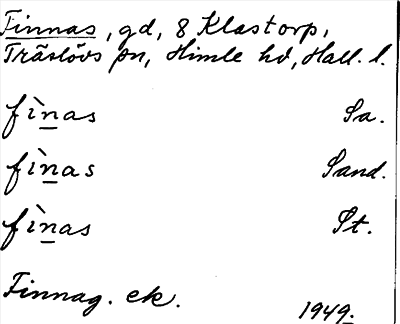 Finnas, gd, 8 Klastorp,
Träslövs sn, Himle hd, Hall. l.
fìnas Sa.
fìnas Sand.
fìnas St.
Finnag. ek.
1949.